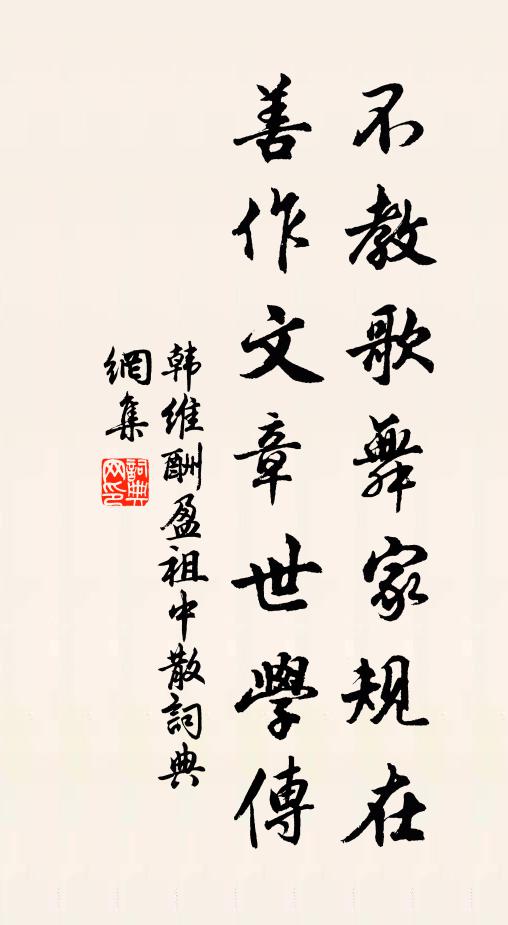 不教歌舞家規在
善作文章世學傳
韩維酬盈祖中散詞典
網集
詞典
网印